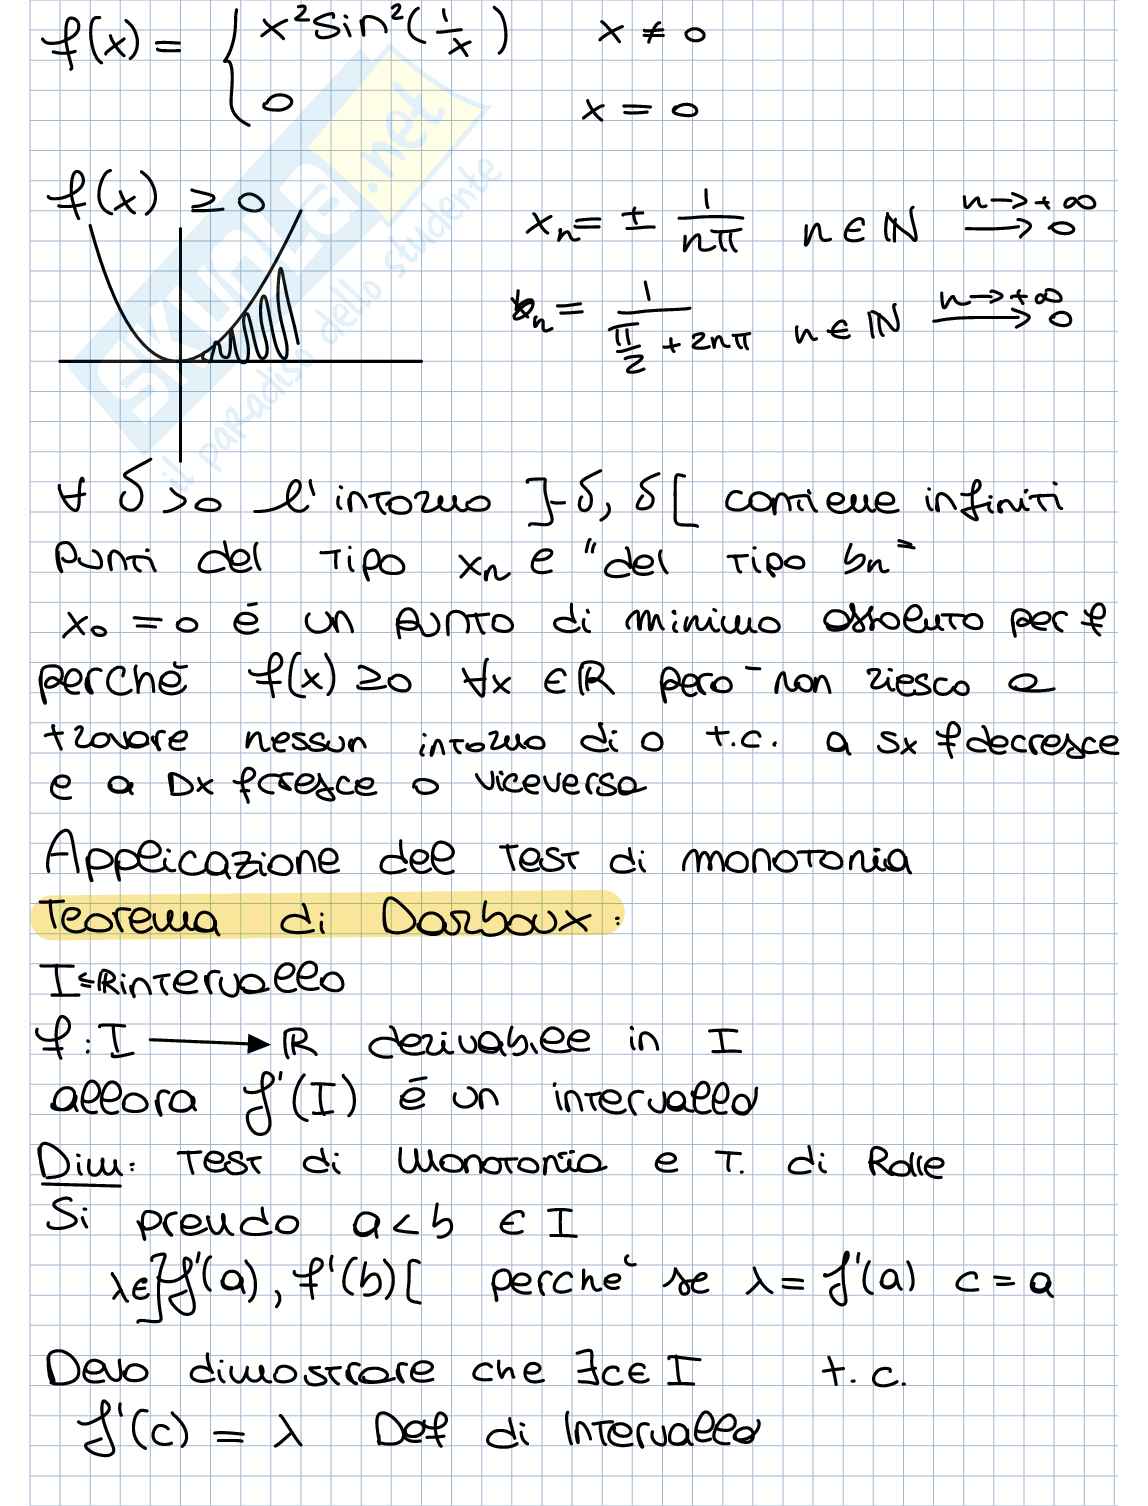 f(x) = { x² sin²(1/x)   x ≠ 0
0   x = 0
f(x) ≥ 0
xₙ = ± 1/nπ   n ∈ ℕ   n→+∞ ⟶ 0
bₙ = 1/(π/2 + 2nπ)   n ∈ ℕ   n→+∞ ⟶ 0
∀ δ>0 l'intorno ]-δ, δ[ contiene infiniti
punti del tipo xₙ e "del tipo bₙ"
x₀ = 0 é un punto di minimo assoluto per f
perchè f(x) ≥0 ∀x ∈ℝ pero non riesco a
trovare nessun intorno di 0 t.c. a sx f decresce
e a Dx f cresce o viceversa
Applicazione del Test di monotonia
Teorema di Darboux:
I⊆ℝ intervallo
f: I ⟶ ℝ derivabile in I
allora f'(I) é un intervallo
Dim: Test di Monotonia e T. di Rolle
Si prendo a<b ∈ I
λ∈]f'(a), f'(b)[ perche' se λ= f'(a) c=a
Devo dimostrare che ∃c∈ I t.c.
f'(c) = λ Def di Intervallo
SKUOLA.net
il paradiso dello studente